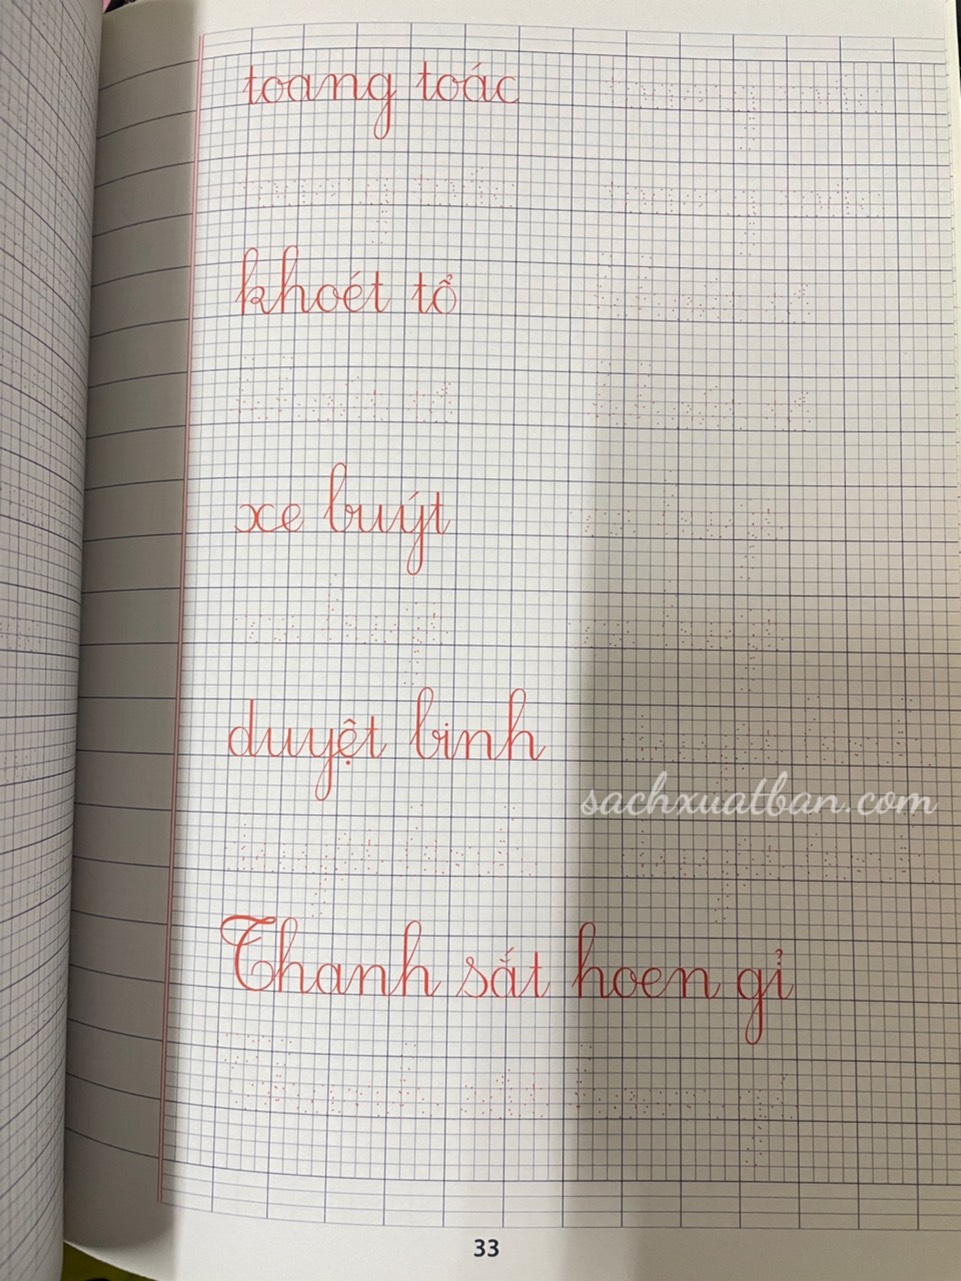 toang toác
khoét tổ
xe buýt
duyệt binh
sachxuatban.com
Thanh sắt hoen gỉ
33